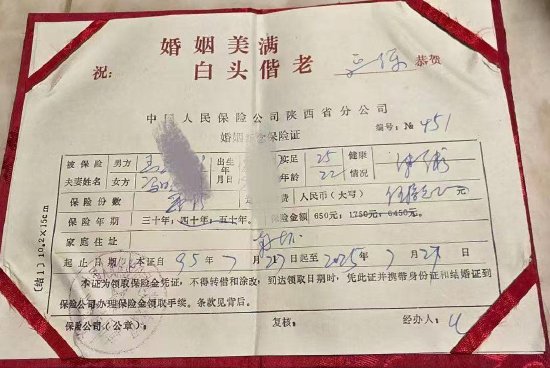 婚姻美满
祝： 白头偕老 恭贺
中国人民保险公司陕西省分公司
婚姻 保险证 编号：№ 451
被保险 男方 出生 实足 25 健康
夫妻姓名 女方 年 月 日 年龄 22 情况
保险份数 费 人民币（大写） 元
保险年期 三十年、四十年、五十年。 保险金额 650元；1750元；6450元。
家庭住址
起止日期 本证自 95年 7月 27日起至 2025年 7月 27日
本证为领取保险金凭证，不得转借和涂改，到达领取日期时，凭此证并携带身份证和结婚证到
保险公司办理保险金领取手续。条款见背后。
保险公司（公章）： 复核： 经办人：
〔结1〕10.2×15cm